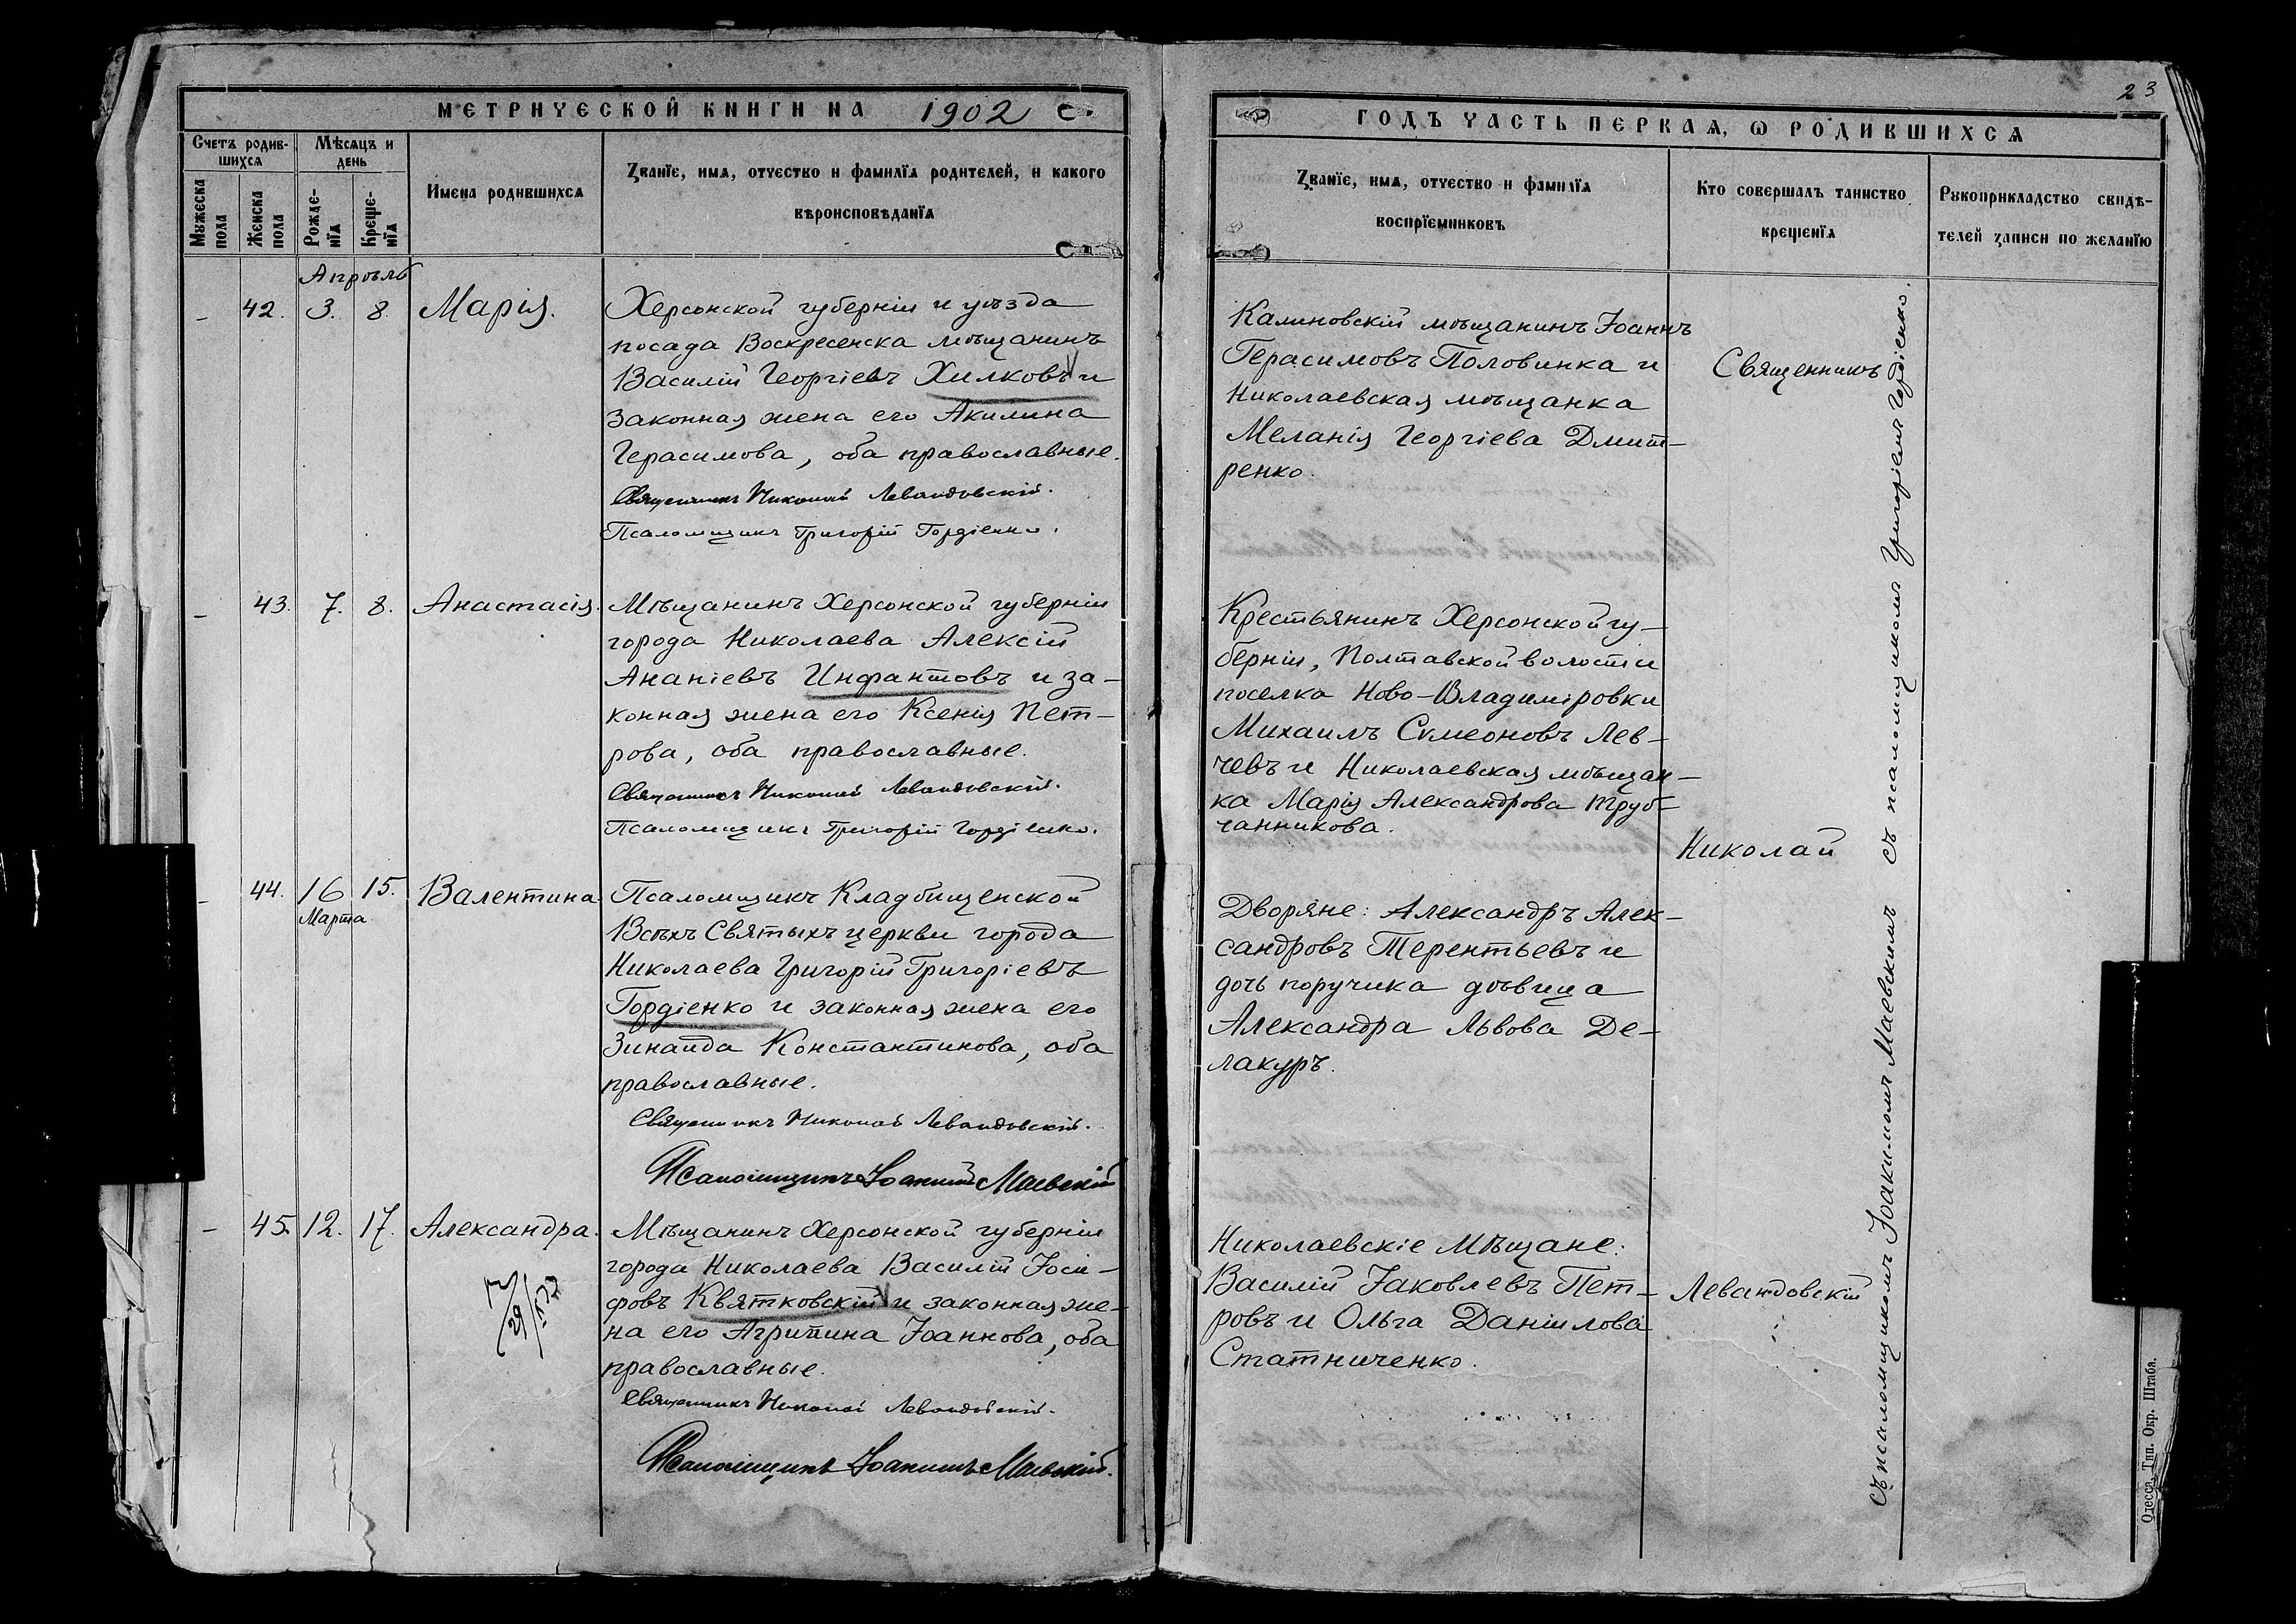 МЕТРИЧЕСКОЙ КНИГИ НА 1902
Счетъ родив-
шихся
Мѣсяцъ и
день
Мужеска
пола
Женска
пола
Рожде-
нїя
Креще-
нїя
Имена родившихся
Званїе, имя, отчество и фамилїя родителей, и какого
вѣроисповѣданїя
Апрѣль
42. 3. 8. Марія.
Херсонской губерніи и уѣзда
посада Воскресенска мѣщанинъ
Василій Георгіевъ Хилковъ и
законная жена его Акилина
Герасимова, оба православные.
Священникъ Николай Левандовскій.
Псаломщикъ Григорій Гордіенко.
43. 7. 8. Анастасія.
Мѣщанинъ Херсонской губерніи
города Николаева Алексій
Ананіевъ Инфантовъ и за-
конная жена его Ксенія Пет-
рова, оба православные.
Священникъ Николай Левандовскій.
Псаломщикъ Григорій Гордіенко.
44. 16 15. Валентина.
Марта
Псаломщикъ Кладбищенской
Всѣхъ Святыхъ церкви города
Николаева Григорій Григоріевъ
Гордіенко и законная жена его
Зинаида Константинова, оба
православные.
Священникъ Николай Левандовскій.
Псаломщикъ Іоакимъ Маевскій
45. 12. 17. Александра.
Мѣщанинъ Херсонской губерніи
города Николаева Василій Іоси-
фовъ Квятковскій и законная же-
на его Агрипина Іоаннова, оба
православные.
Священникъ Николай Левандовскій.
Псаломщикъ Іоакимъ Маевскій.
23
ГОДЪ ЧАСТЬ ПЕРВАЯ, Ѡ РОДИВШИХСЯ
Званїе, имя, отчество и фамилїя
воспрїемниковъ
Кто совершалъ таинство
крещенїя
Рукоприкладство свидѣ-
телей записи по желанїю
Калиновскій мѣщанинъ Іоаннъ
Герасимовъ Половинка и
Николаевская мѣщанка
Меланія Георгіева Дмит-
ренко.
Крестьянинъ Херсонской гу-
берніи, Полтавской волости
поселка Ново-Владиміровки
Михаилъ Сѵмеоновъ Лев-
чевъ и Николаевская мѣщан-
ка Марія Александрова Труб-
чанникова.
Дворяне: Александръ Алек-
сандровъ Терентьевъ и
дочь поручика дѣвица
Александра Львова Де-
лакуръ.
Николаевскіе Мѣщане:
Василій Іаковлевъ Пет-
ровъ и Ольга Даніилова
Статниченко.
Священникъ
Николай
Левандовскій
Съ псаломщикомъ Іоакимомъ Маевскимъ съ псаломщикомъ Григоріемъ Гордіенко.
Одесса, Тип. Окр. Штаба.